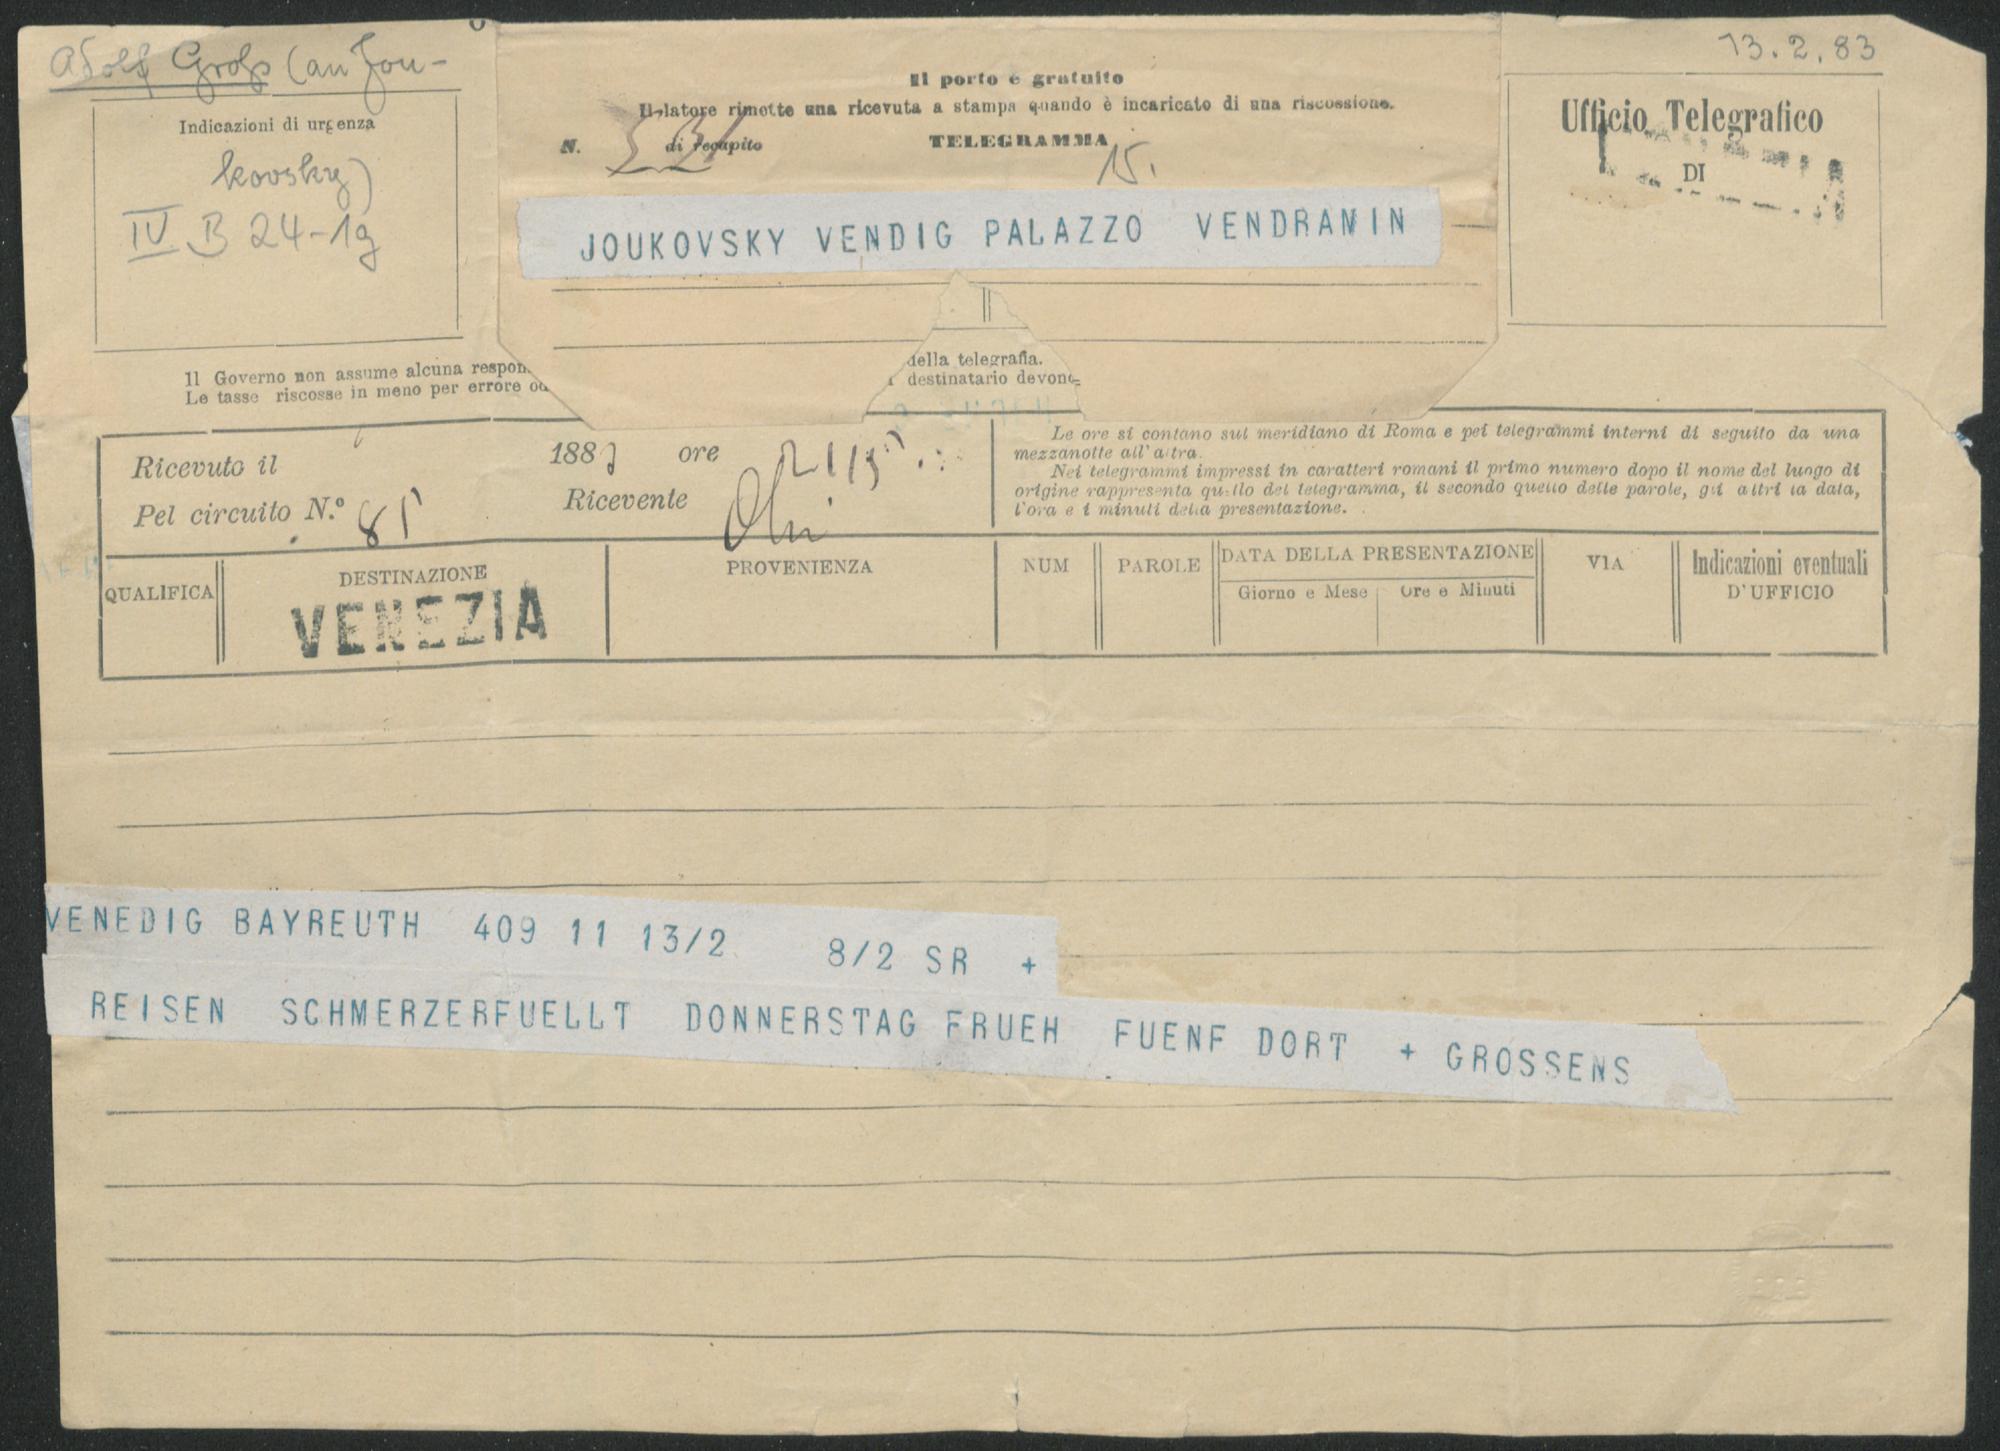 Adolf Groß (an Jou-
kovsky)
IV B 24-1g
13.2.83
Indicazioni di urgenza
Il porto e gratuito
Il latore rimette una ricevuta a stampa quando è incaricato di una riscossione.
N. di recapito TELEGRAMMA
15.
Ufficio Telegrafico
DI
JOUKOVSKY VENDIG PALAZZO VENDRAMIN
Il Governo non assume alcuna respon
Le tasse riscosse in meno per errore od
della telegrafia.
destinatario devono
Ricevuto il 1883 ore
Pel circuito N.º 85 Ricevente
Le ore si contano sul meridiano di Roma e pei telegrammi interni di seguito da una
mezzanotte all'altra.
Nei telegrammi impressi in caratteri romani il primo numero dopo il nome del luogo di
origine rappresenta quello del telegramma, il secondo quello delle parole, gli altri la data,
l'ora e i minuti della presentazione.
QUALIFICA DESTINAZIONE PROVENIENZA NUM PAROLE DATA DELLA PRESENTAZIONE VIA Indicazioni eventuali
Giorno e Mese Ore e Minuti D'UFFICIO
VENEZIA
VENEDIG BAYREUTH 409 11 13/2 8/2 SR +
REISEN SCHMERZERFUELLT DONNERSTAG FRUEH FUENF DORT + GROSSENS